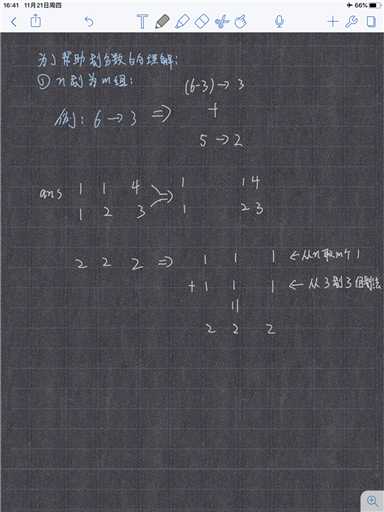 16:41 11月21日周四
66%
为了帮助划分数的的理解:
① n 划为 m 组:
例: 6 → 3 ⇒ (6-3) → 3
+
5 → 2
ans 1 1 4 ⇒ 1 1 4
1 2 3 1 2 3
2 2 2 ⇒ 1 1 1 ← 从n取m个1
+ 1 1 1 ← 从3划3的划法
11
2 2 2